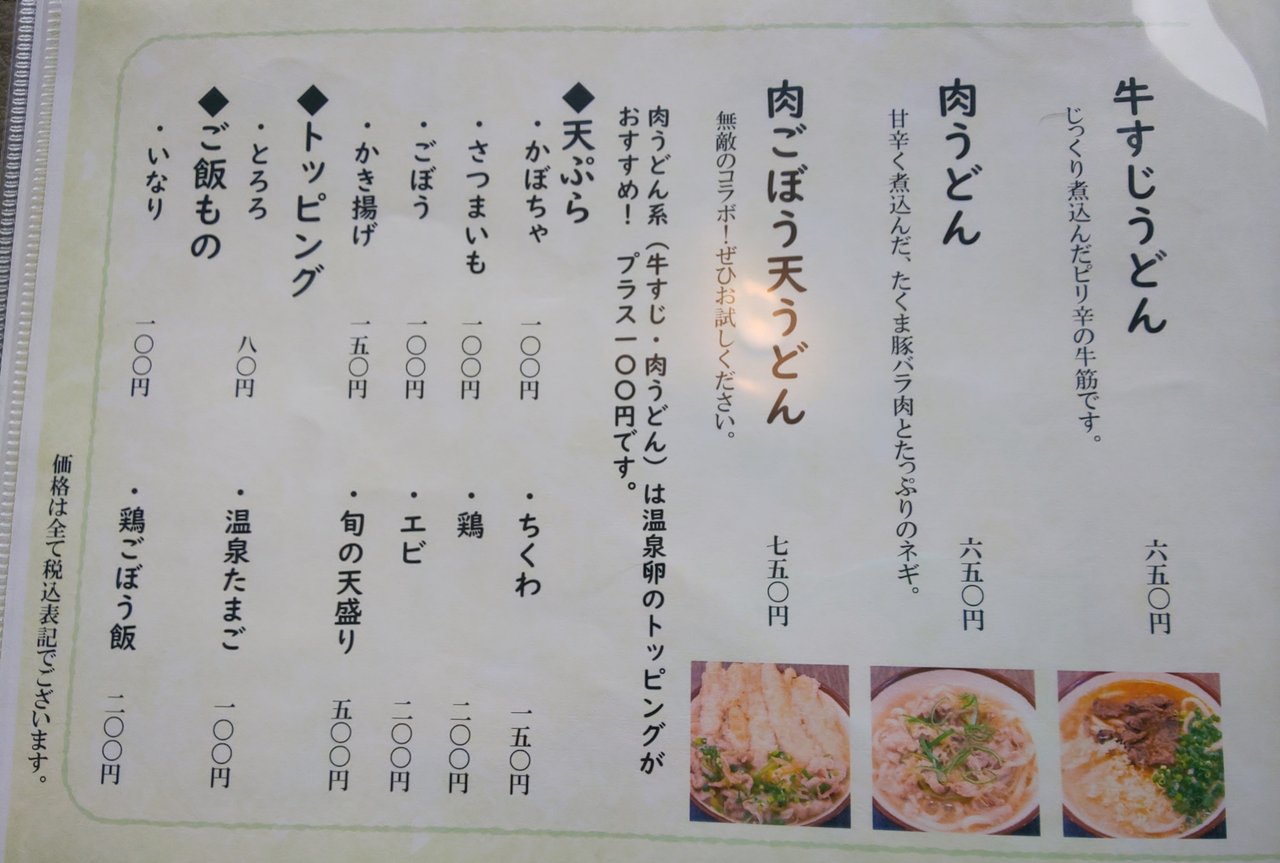 牛すじうどん
六五〇円
じっくり煮込んだピリ辛の牛筋です。
肉うどん
六五〇円
甘辛く煮込んだ、たくま豚バラ肉とたっぷりのネギ。
肉ごぼう天うどん
七五〇円
無敵のコラボ!ぜひお試しください。
肉うどん系(牛すじ・肉うどん)は温泉卵のトッピングが
おすすめ! プラス一〇〇円です。
◆天ぷら
・かぼちゃ 一〇〇円 ・ちくわ 一五〇円
・さつまいも 一〇〇円 ・鶏 二〇〇円
・ごぼう 一〇〇円 ・エビ 二〇〇円
・かき揚げ 一五〇円 ・旬の天盛り 五〇〇円
◆トッピング
・とろろ 八〇円 ・温泉たまご 一〇〇円
◆ご飯もの
・いなり 一〇〇円 ・鶏ごぼう飯 二〇〇円
価格は全て税込表記でございます。